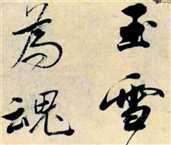 玉雪
為魂